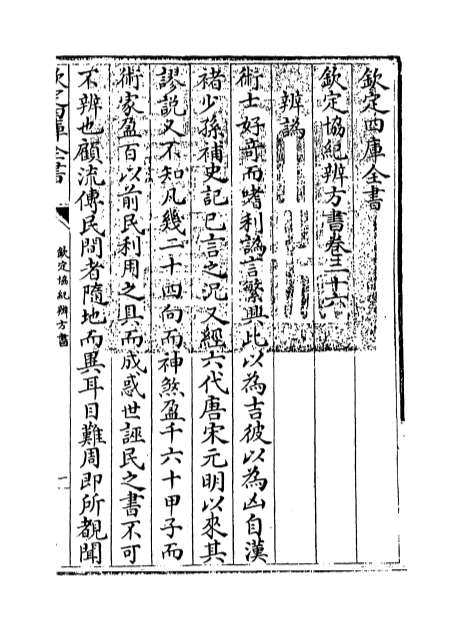 欽定四庫全書
欽定協紀辨方書卷三十六
辨譌
術士好竒而嗜利譌言繁興此以為吉彼以為凶自漢
褚少孫補史記已言之况又經六代唐宋元明以來其
謬説又不知凡幾二十四向而神煞盈千六十甲子而
術家盈百以前民利用之具而成惑世誣民之書不可
不辨也顧流傳民間者隨地而異耳目難周即所覩聞
欽定四庫全書
欽定協紀辨方書
一